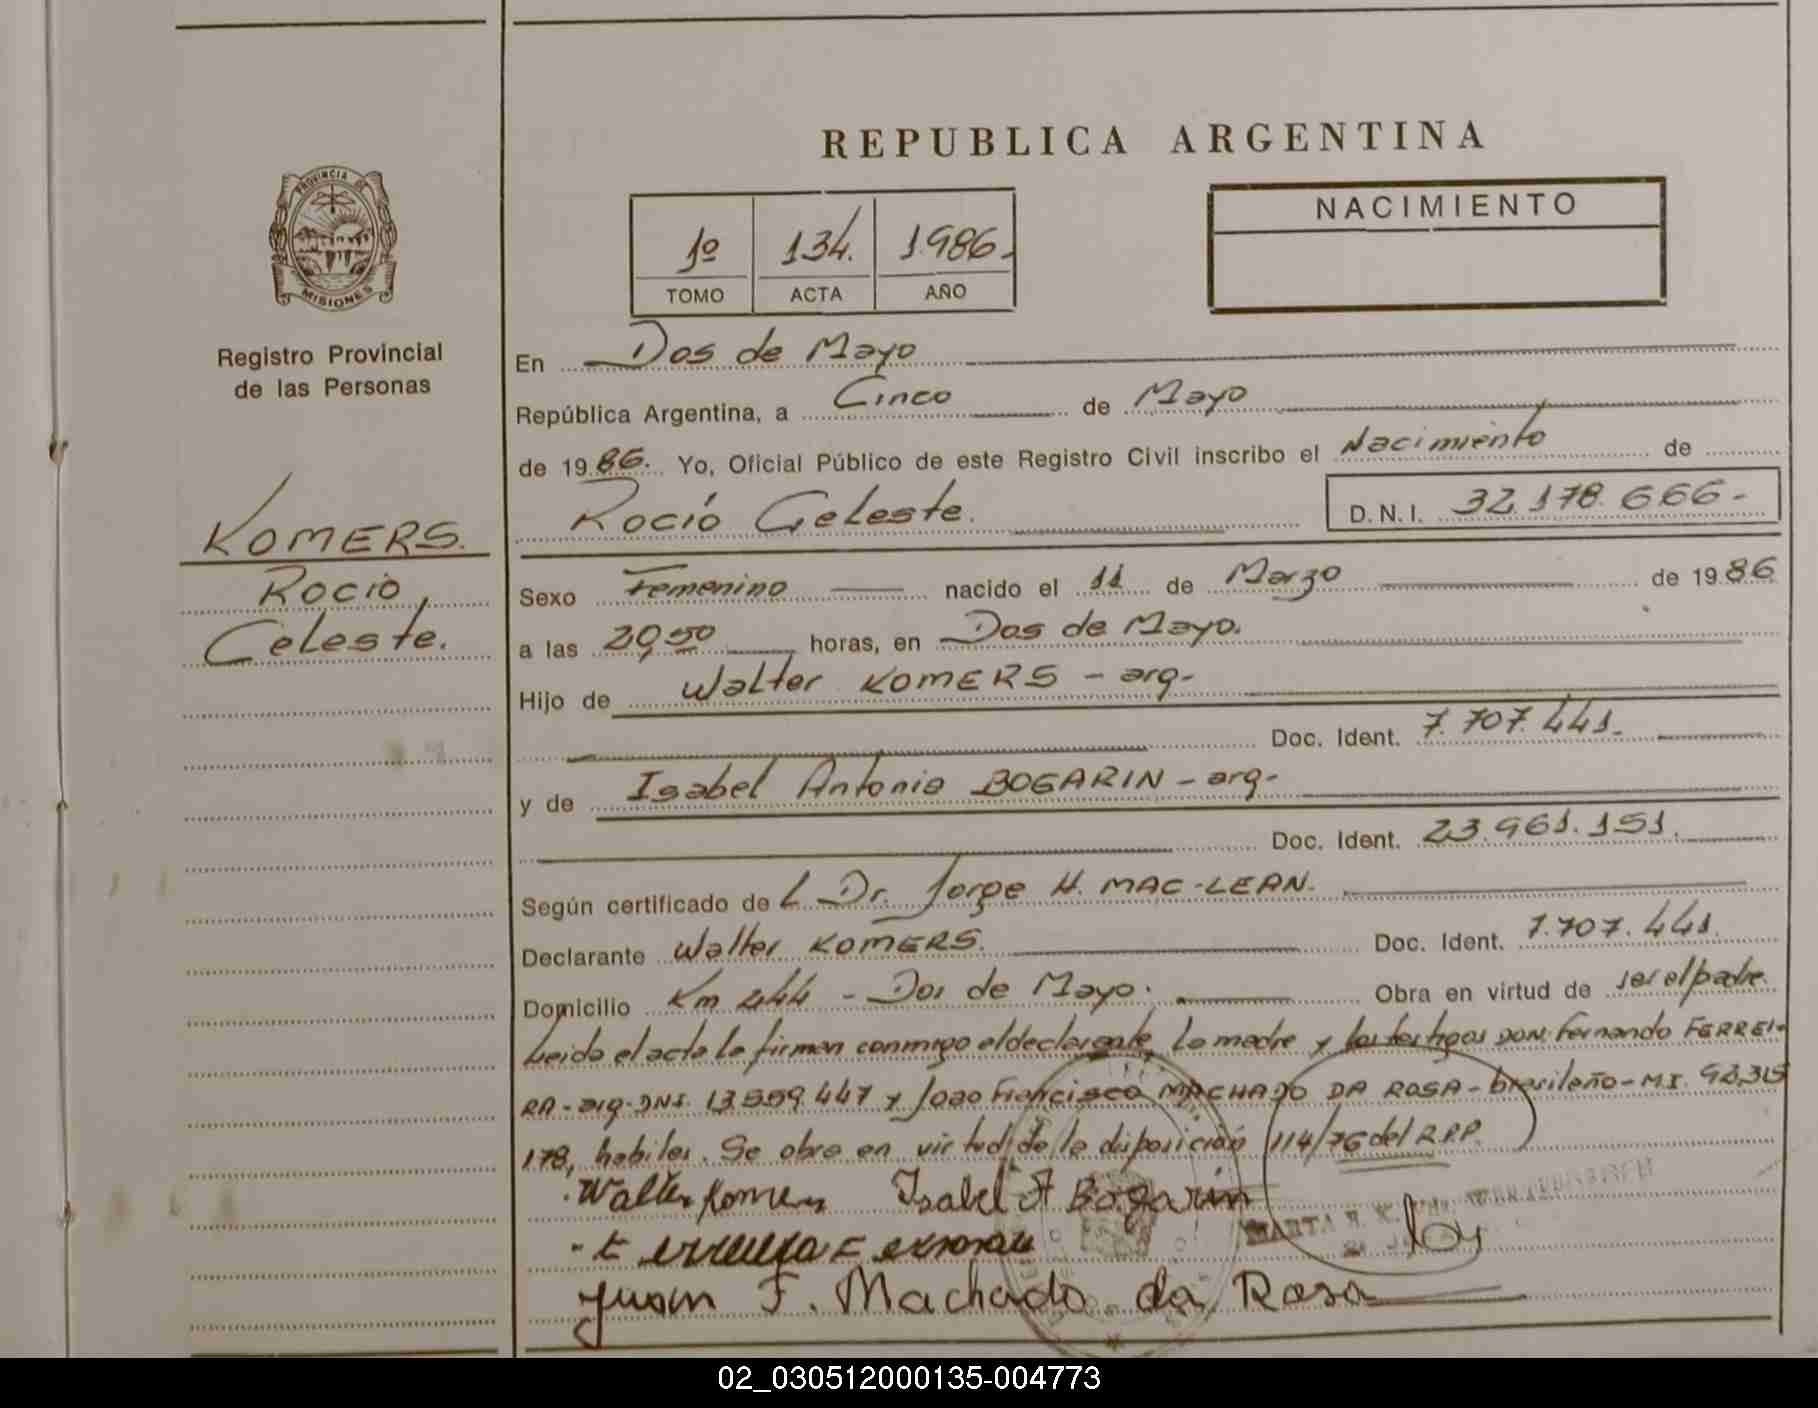 REPUBLICA ARGENTINA
PROVINCIA DE
MISIONES
Registro Provincial
de las Personas
KOMERS.
Rocio
Celeste.
1º 134. 1.986.-
TOMO ACTA AÑO
NACIMIENTO
En Dos de Mayo
República Argentina, a Cinco de Mayo
de 1986. Yo, Oficial Público de este Registro Civil inscribo el Nacimiento de
Rocío Celeste. D.N.I. 32.178.666-
Sexo Femenino nacido el 11 de Marzo de 1986
a las 20,50 horas, en Dos de Mayo.
Hijo de Walter KOMERS - arg-
Doc. Ident. 7.707.441.-
y de Isabel Antonia BOGARIN - arg-
Doc. Ident. 23.961.151.
Según certificado del Dr. Jorge H. MAC-LEAN.
Declarante Walter KOMERS. Doc. Ident. 7.707.441.
Domicilio Km 244 - Dos de Mayo. Obra en virtud de ser el padre.
Leida el acta la firman conmigo el declarante, la madre y los testigos DON: Fernando FERREI-
RA-arg-DNI. 13.559.447 y Joao Francisco MACHADO DA ROSA - brasileño - M.I. 92.315
178, habiles. Se obra en virtud de la disposición 114/76 del R.P.P.
Walter Komers Isabel A Bogarin
MARTA
Juan F. Machado da Rosa
02_030512000135-004773